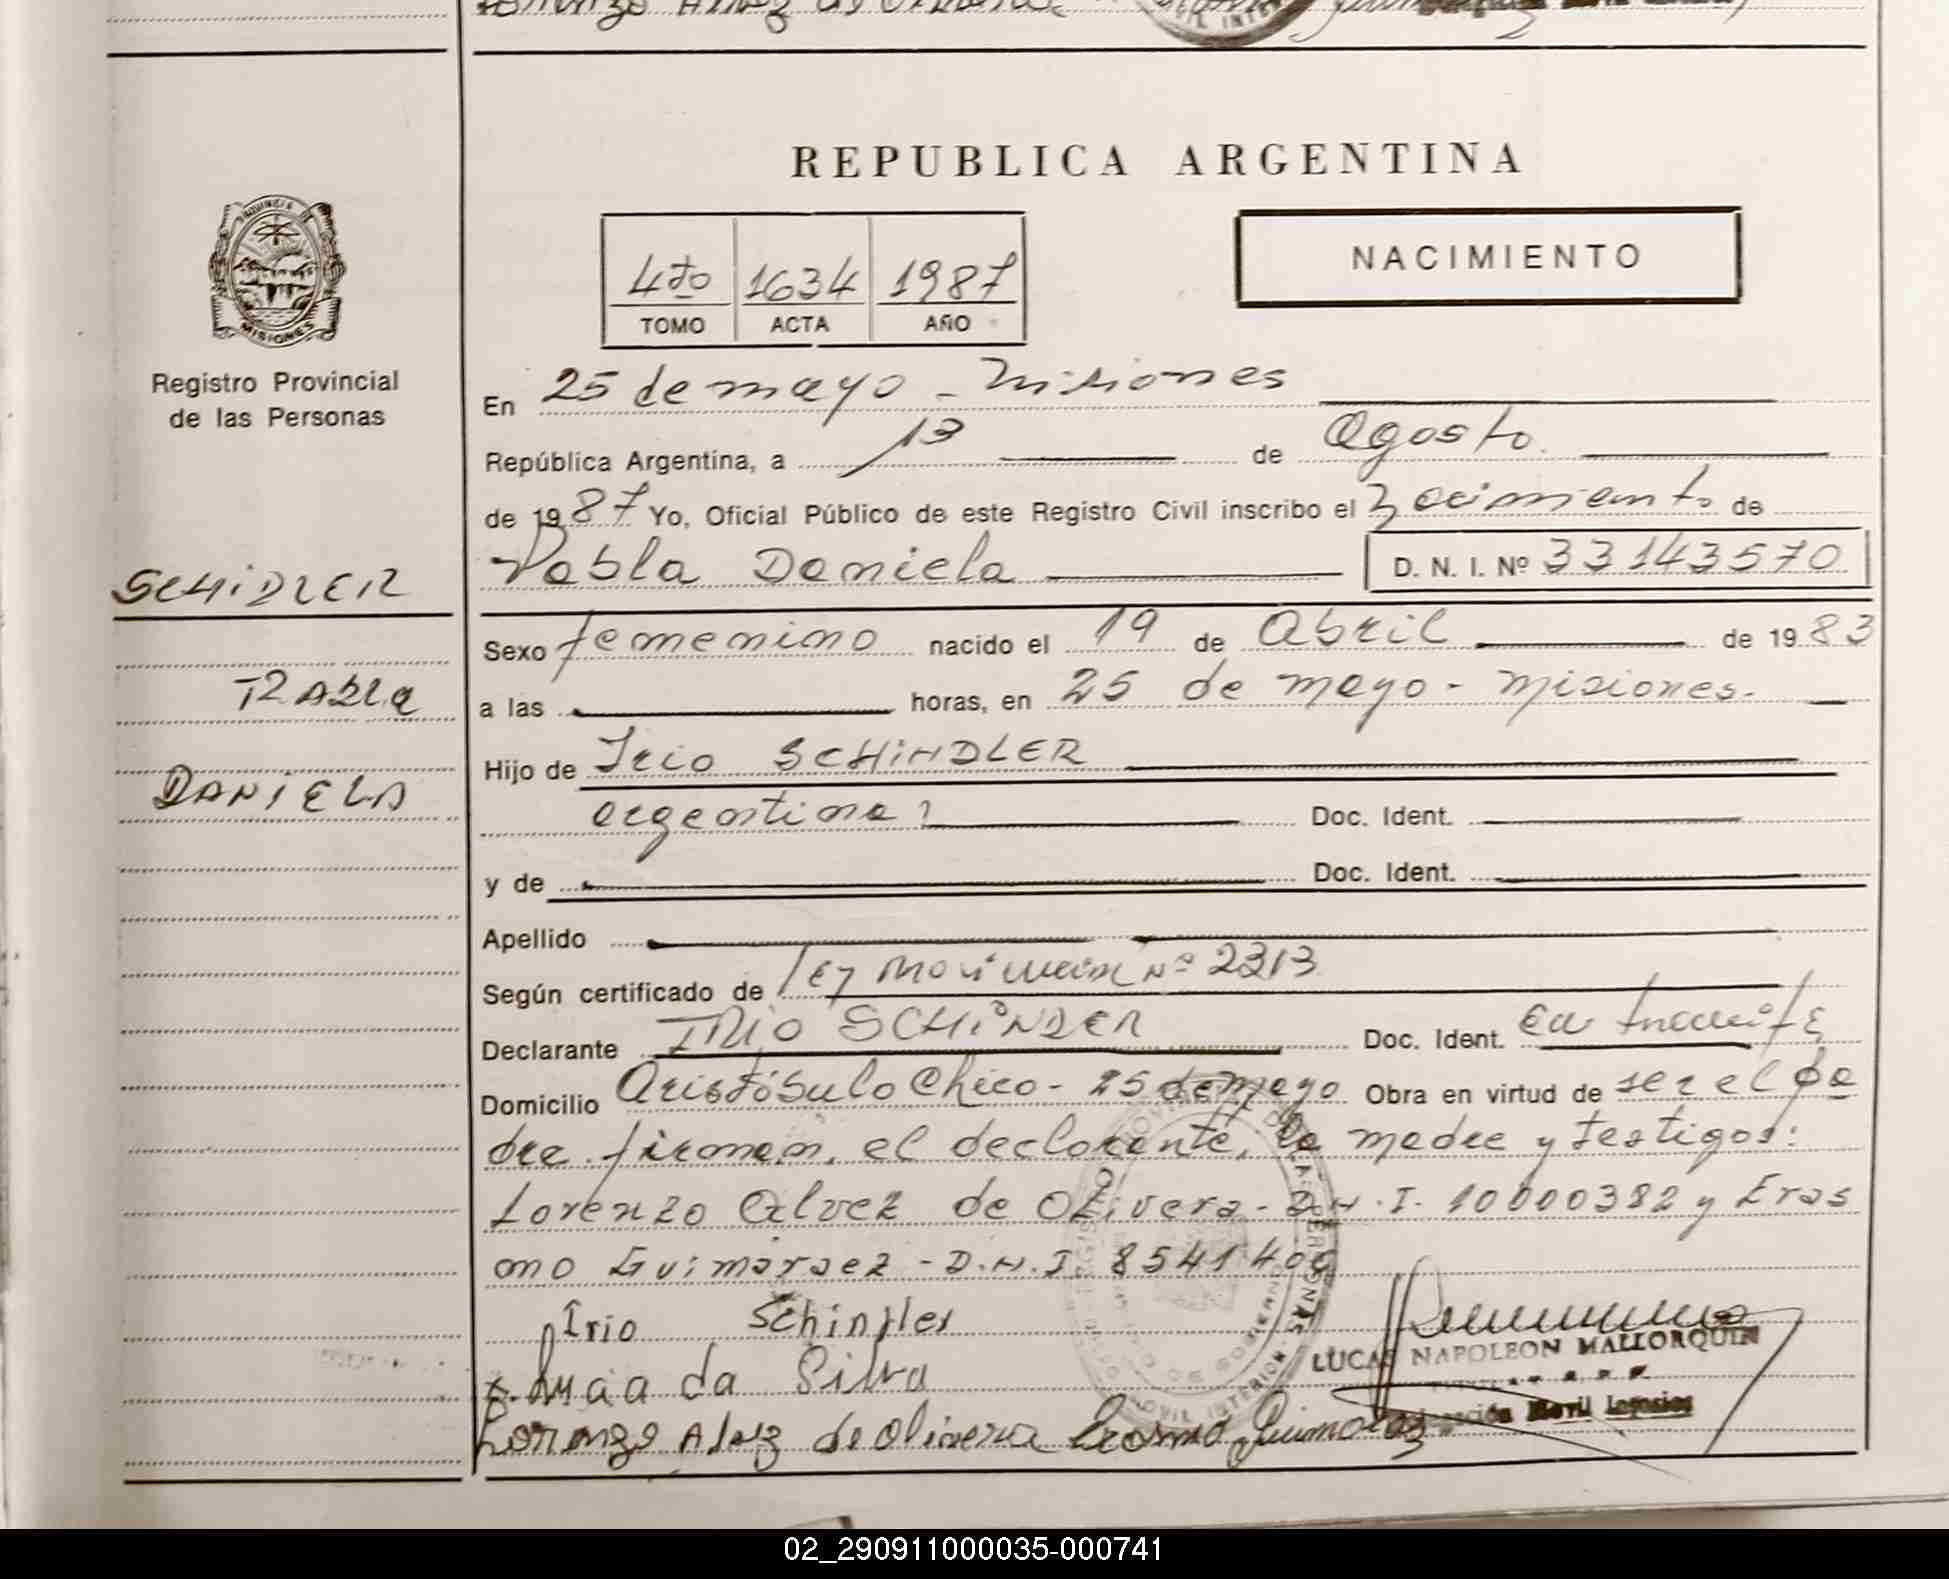 REPUBLICA ARGENTINA
PROVINCIA DE
MISIONES
Registro Provincial
de las Personas
4to 1634 1987
TOMO ACTA AÑO
NACIMIENTO
En 25 de mayo - Misiones
República Argentina, a 13 de Agosto
de 1987 Yo, Oficial Público de este Registro Civil inscribo el Nacimiento de
Pabla Daniela D. N. I. Nº 33143570
SCHIDLER
Sexo femenino nacido el 19 de Abril de 1983
PABLA
a las horas, en 25 de mayo - misiones.
Hijo de Irio SCHINDLER
DANIELA
argentina Doc. Ident.
y de Doc. Ident.
Apellido
Según certificado de ley Nº 2313
Declarante IRIO SCHINDER Doc. Ident. en tramite
Domicilio Aristóbulo Chico - 25 de mayo Obra en virtud de ser el pa
dre firman, el declarante, la madre y testigos:
Lorenzo Alvez de Olivera - D.N.I. 10000382 y Eras
mo Guimaraez - D.N.I. 8541400
Irio Schindler
da Silva
LUCAS NAPOLEON MALLORQUIN
Movil
Lorenzo Alvez de Olivera Erasmo Guimaraez
02_290911000035-000741